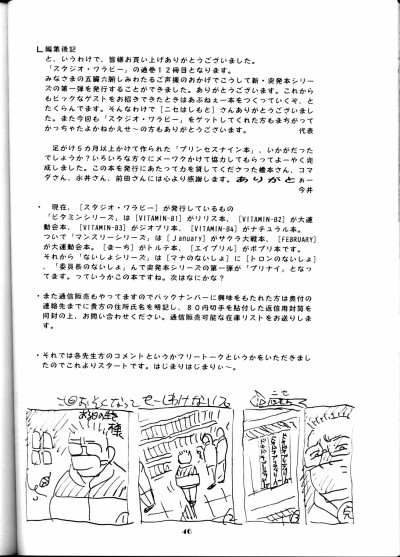 編集後記
と、いうわけで、皆様お買い上げありがとうございました。
「スタジオ・ワラビー」の通巻12冊目となります。
みなさまの五臓六腑しみわたるご声援のおかげでこうして新・突発本シリー
ズの第一弾を発行することができました。ありがとうございます。これから
もビックなゲストをお招きできたときはあぶねぇ一本をつくっていくぞ、と
たくらんでます。そんなわけで「ニセはしもと」さんありがとうございまし
た。また今回も「スタジオ・ワラビー」をゲットしてくれた方もまちがって
かっちゃたよかねかえせ〜の方もありがとうございます。 代表
足がけ5カ月以上かけて作られた「プリンセスナイン本」、いかがだった
でしょうか?いろいろな方々にメーワクかけて協力してもらってよーやく完
成しました。この本を発行にあたって力を貸してくださった橋本さん、コマ
ダさん、永井さん、前田さんには心より感謝します。ありがとぉー
今井
・ 現在、[スタジオ・ワラビー]が発行しているもの
「ビタミンシリーズ」は[VITAMIN-B1]がリリス本、[VITAMIN-B2]が大運
動会本、[VITAMIN-B3]がジオブリ本、[VITAMIN-B4]がナチュラル本。
ついで「マンスリーシリーズ」は[January]がサクラ大戦本、[FEBRUARY]
が大運動会本。[まーち]がトルテ本、[エイプリル]がポプリ本です。
それから「ないしょシリーズ」は[マナのないしょ]に[トロンのないしょ]
、「委員長のないしょ」んで突発本シリーズの第一弾が「プリナイ」となっ
てます。っていうかこの本ですね。次はなにかな?
・また通信販売もやってますのでバックナンバーに興味をもたれた方は奥付の
連絡先までに貴方の住所氏名を明記し、80円切手を貼付した返信用封筒を
同封の上、お問い合わせください。通信販売可能な在庫リストをお送りしま
す。
・それでは各先生方のコメントというかフリートークというかをいただきまし
たのでこれよりスタートです。はじまりはじまりぃ〜。
ニセ
様
40